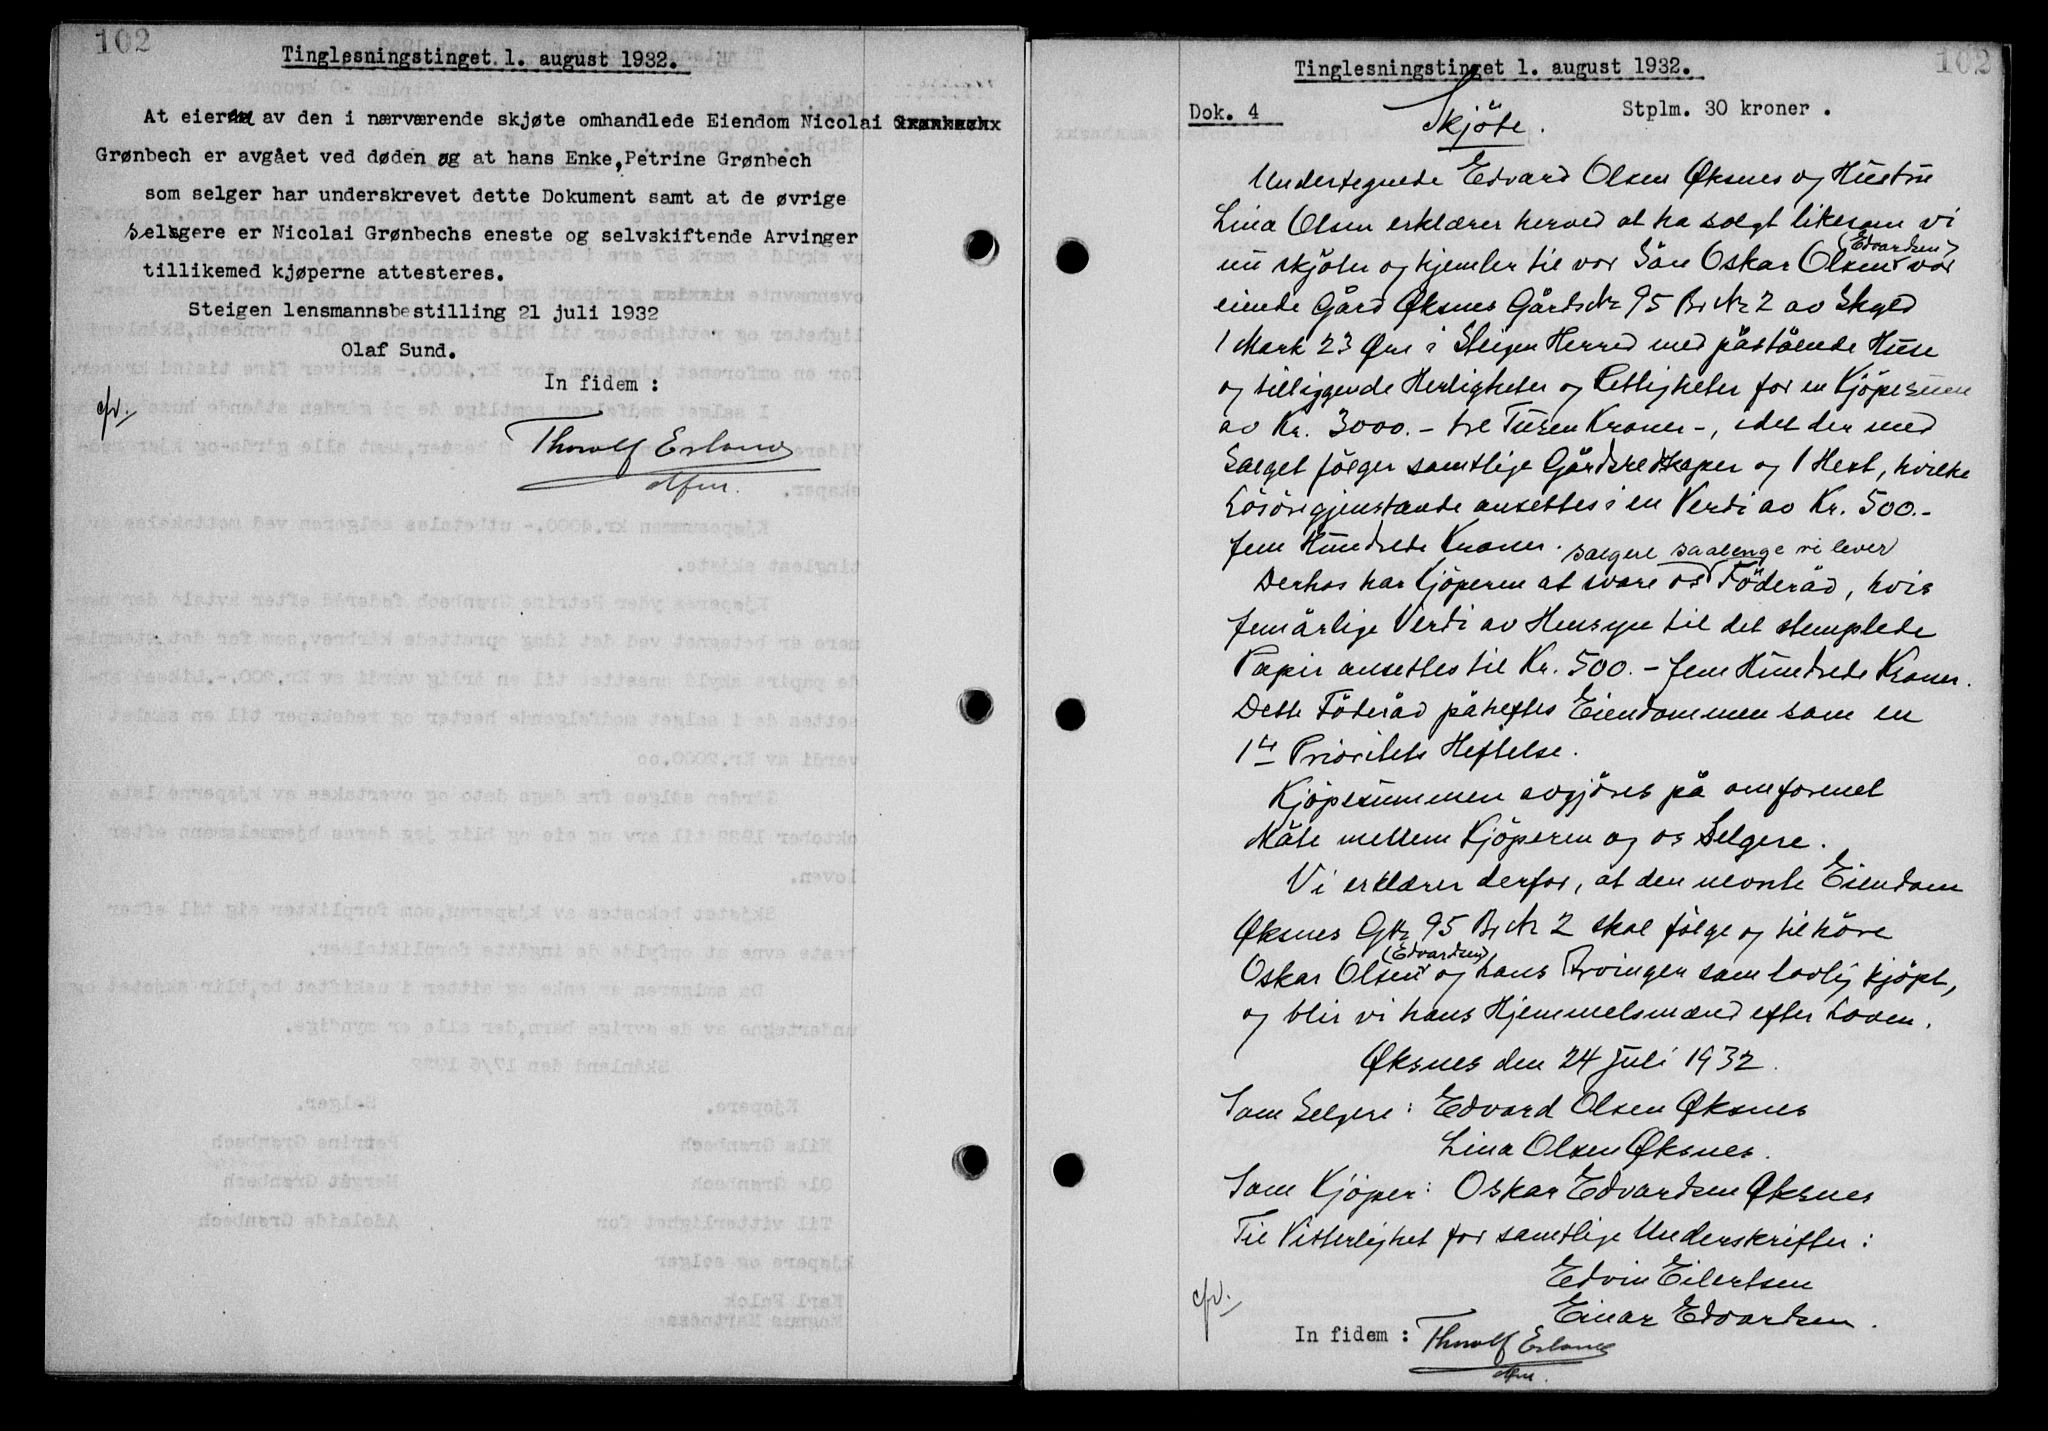 102
Tinglesningstinget 1. august 1932.
At eieren av den i nærværende skjøte omhandlede Eiendom Nicolai
Grønbech er avgået ved døden og at hans Enke, Petrine Grønbech
som selger har underskrevet dette Dokument samt at de øvrige
selgere er Nicolai Grønbechs eneste og selvskiftende Arvinger
tillikemed kjøperne attesteres.
Steigen lensmannsbestilling 21 juli 1932
Olaf Sund.
In fidem :
Thorolf Erland
102
Tinglesningstinget 1. august 1932.
Dok. 4 Skjöte. Stplm. 30 kroner .
Undertegnede Edvard Olsen Øksnes og Hustru
Lina Olsen erklærer herved at ha solgt likesom vi
nu skjöter og hjemler til vor Sön Oskar Olsen (Edvardsen) vor
eiende Gård Øksnes Gårds Nr 95 Br Nr 2 av Skyld
1 Mark 23 Øre i Steigen Herred med påstående Huse
og tilliggende Herligheter og Rettigheter for en Kjöpesum
av Kr. 3000.- tre Tusen Kroner -, idet der med
Salget fölger samtlige Gårdsredskaper og 1 Hest, hvilke
Lösöregjenstande ansettes i en Verdi av Kr. 500.-
fem Hundrede Kroner.
Derhos har Kjöperen at svare os selgere saalenge vi lever Föderåd, hvis
femårlige Verdi av Hensyn til det stemplede
Papir ansettes til Kr. 500.- fem Hundrede Kroner.
Dette Föderåd påheftes Eiendommen som en
1ste Prioritets Heftelse.
Kjöpesummen avgjöres på omforenet
Måte mellem Kjöperen og os Selgere.
Vi erklærer derfor, at den nevnte Eiendom
Øksnes GNr 95 Br Nr 2 skal fölge og tilhöre
Oskar Olsen (Edvardsen) og hans Arvinger som lovlig kjöpt,
og blir vi hans Hjemmelsmænd efter Loven.
Øksnes den 24 juli 1932.
Som Selgere: Edvard Olsen Øksnes
Lina Olsen Øksnes.
Som Kjöper: Oskar Edvardsen Øksnes
Til Vitterlighet for samtlige Underskrifter:
Edvin Eilertsen
Einar Edvardsen.
In fidem : Thorolf Erland